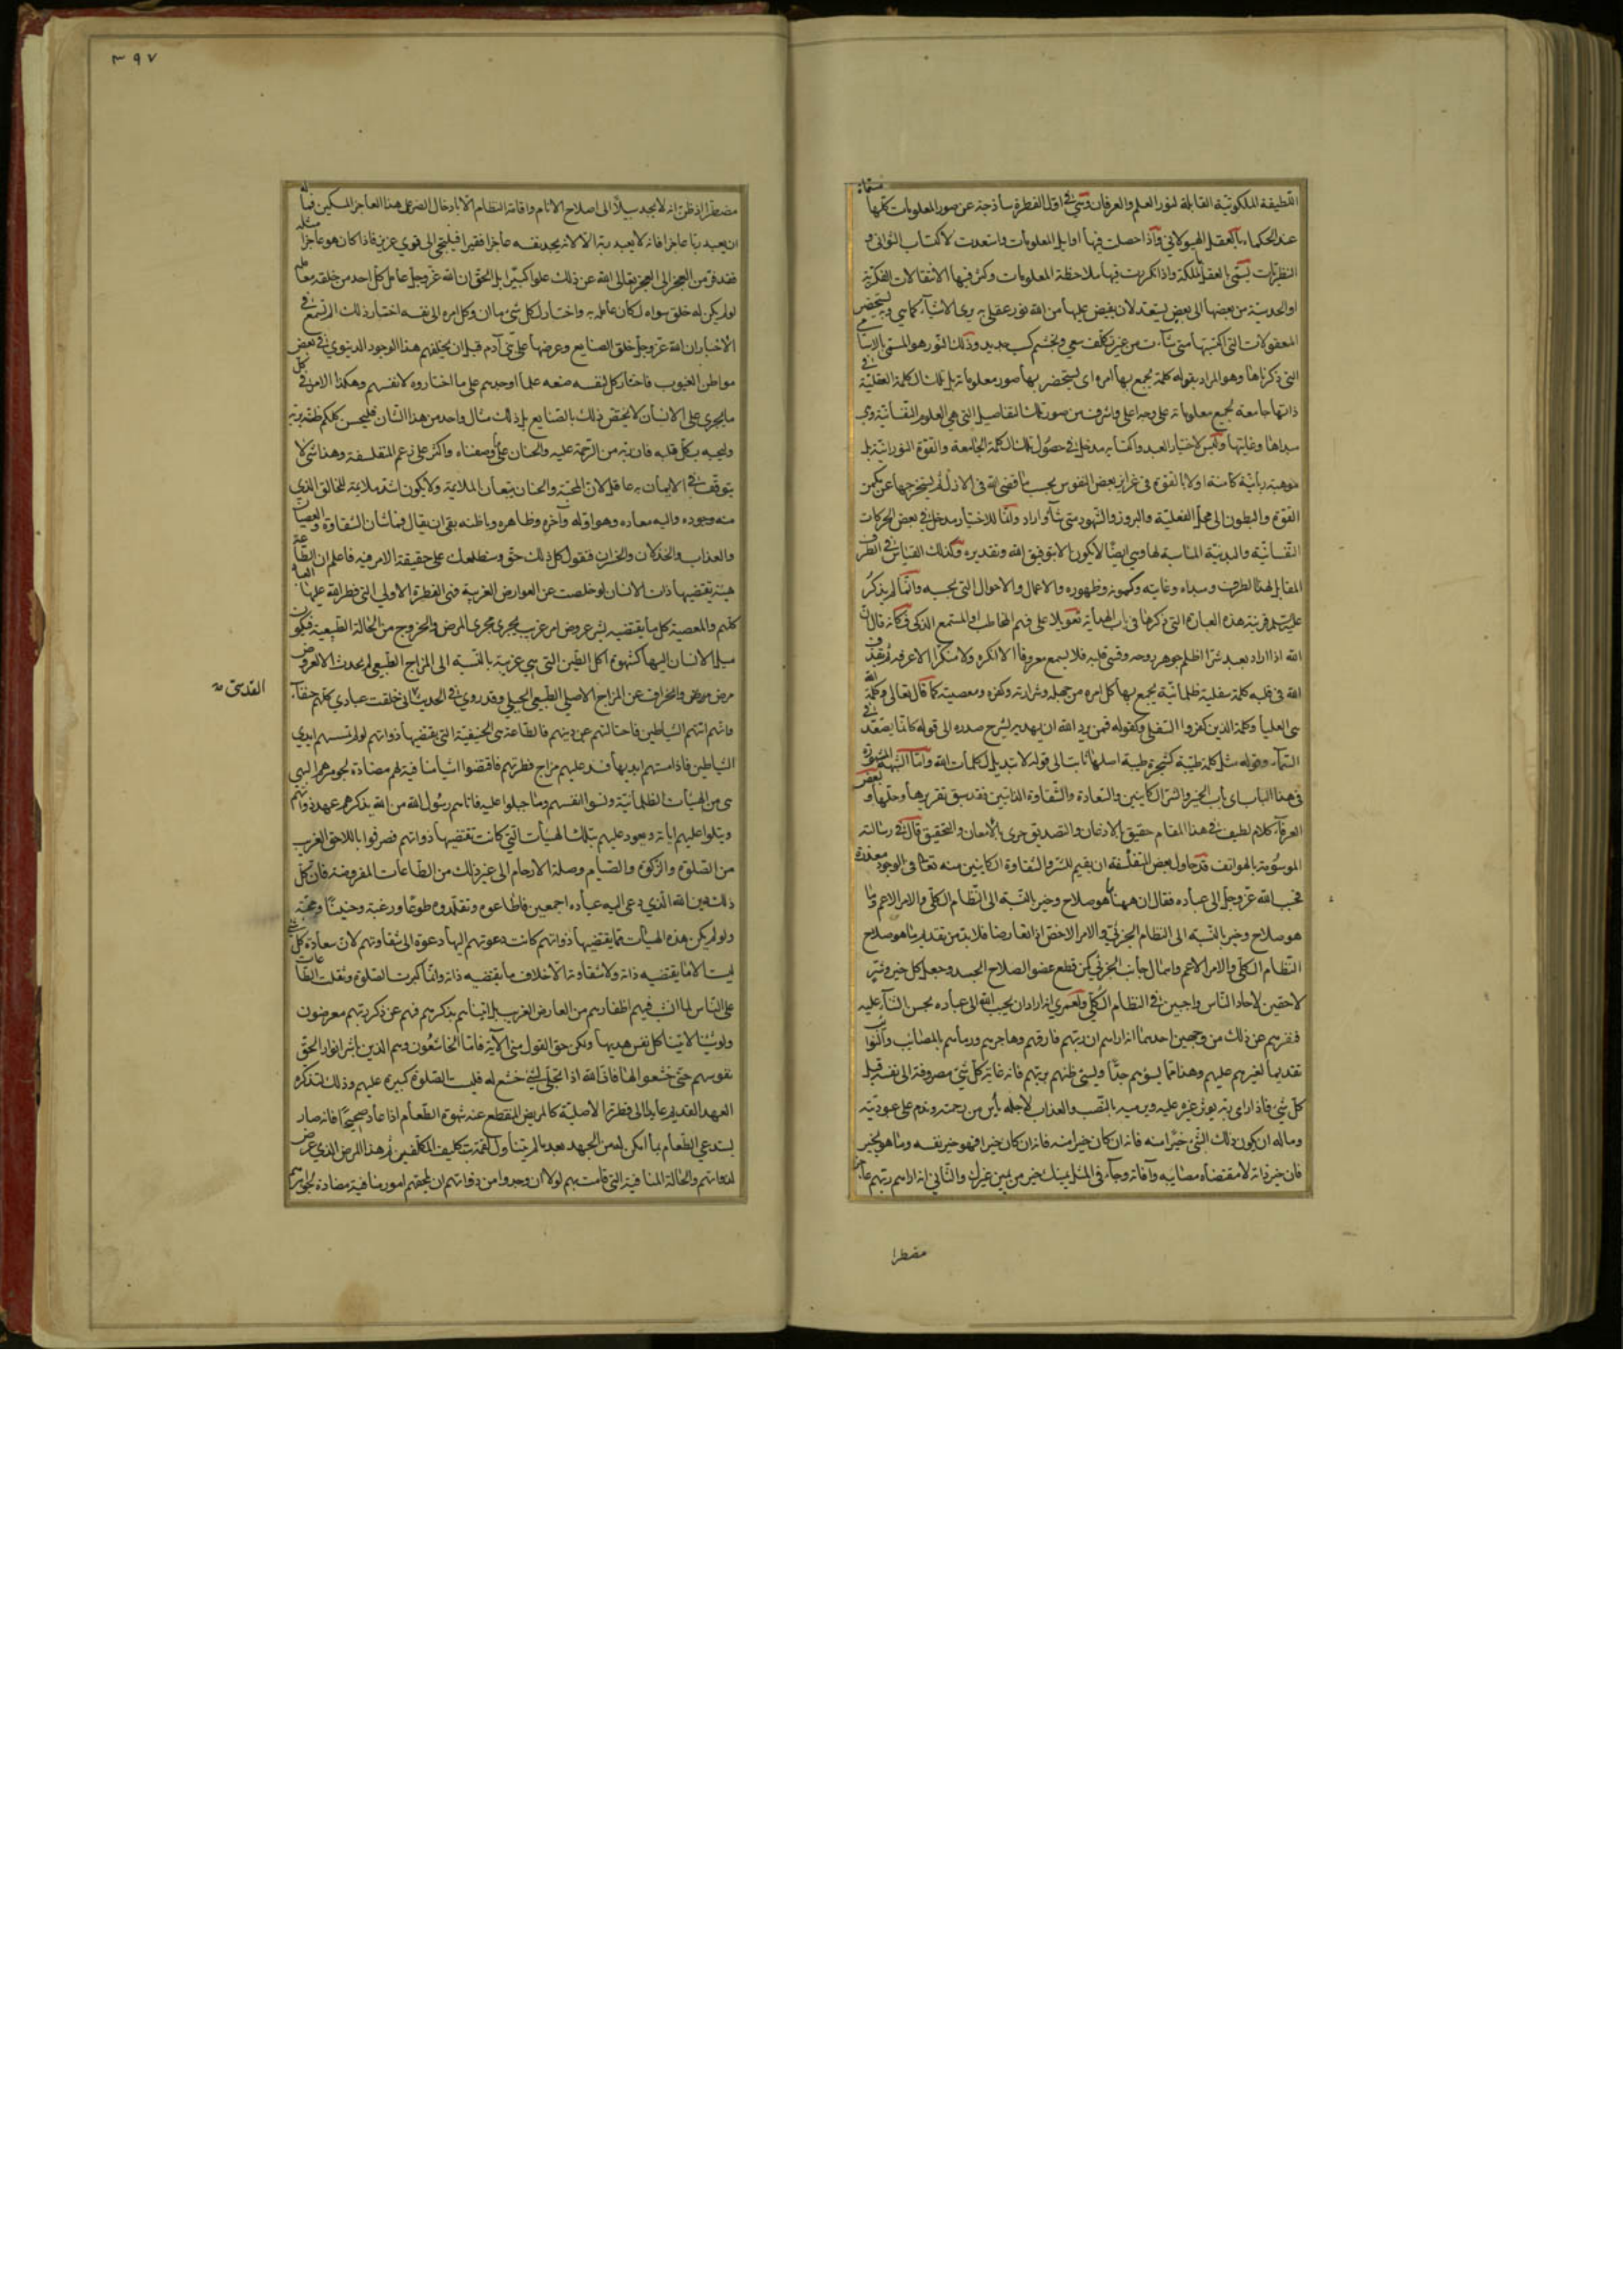 اللطيفة الملكوتية القابلة لنور العلم والعرفان وهي في اول الفطرة ساذجة عن صور المعلومات كلها مسماة
عند الحكماء بالعقل الهيولاني واذا حصلت فيها اوايل المعلومات واستعدت لاكتساب الثواني و
النظريات يسمى بالعقل بالملكة واذا تكررت فيها ملاحظة المعلومات وكثر فيها الانتقالات الفكرية
او الحدسية من بعضها الى بعض يستعد لان يفيض عليها من الله نور عقلي به يرى الاشياء كما هي ويستحضر
المعقولات التي اكتسبها متى شاء من غير تكلف سعي وتجشم كسب جديد وذلك النور هو المسمى بالاسامي
التي ذكرناها وهو المراد بقوله كلمة يجمع بها امره اي يستحضر بها صور معلوماته بل تلك الكلمة العقلية في
ذاتها جامعة لجميع معلوماته على وجه اعلى واشرف من صور تلك التفاصيل التي هي العلوم النفسانية وهي
مبداها وغايتها وليس لاختيار العبد واكتسابه مدخل في حصول تلك الكلمة الجامعة والقوة النورانية بل
موهبة ربانية كامنة اولا بالقوة في غرايز بعض النفوس بحسب ما قضى الله في الازل ثم يستخرجها عن مكمن
القوة والبطون الى مجلى الفعلية والبروز والشهود متى شاء واراد وانما للاختيار مدخل في بعض الحركات
النفسانية والبدنية المناسبة لها وهي ايضا لا يكون الا بتوفيق الله وتقديره وكذلك القياس في الطرف
المقابل لهذا الطرف ومبداه وغايته وكمونه وظهوره والاعمال والاحوال التي بحسبه وانما لم يذكر
عليه السلام قرينة هذه العبارة التي ذكرها في باب الهداية تعويلا على فهم المخاطب او المستمع الذكي فكانه قال ان
الله اذا اراد بعبد شرا اظلم جوهر روحه وقسى قلبه فلا يسمع معروفا الا انكره ولا منكرا الا عرفه ثم يقذف
الله في قلبه كلمة سفلية ظلمانية يجمع بها كل امره من جهله وشرارته وكفره ومعصيته كما قال تعالى وكلمة الله
هي العليا وكلمة الذين كفروا السفلى وكقوله فمن يرد الله ان يهديه يشرح صدره الى قوله كانما يصعد في
السماء وقوله مثل كلمة طيبة كشجرة طيبة اصلها ثابت الى قوله لا تبديل لكلمات الله واما الشبهة المشهورة
في هذا الباب اي باب الخير والشر الكاينين والسعادة والشقاوة الذاتيين فقد سبق تقريرها وحلها ولبعض
العرفاء كلام لطيف في هذا المقام حقيق بالاذعان والتصديق حرى بالامعان والتحقيق قال في رسالته
الموسومة بالهواتف قد حاول بعض المتفلسفة ان يقيم للشر والشقاوة الكاينين منه تعالى في الوجود معذرة
فحبب الله عز وجل الى عباده فقال ان ههنا ما هو صلاح وخير بالنسبة الى النظام الكلي والامر الاعم وما
هو صلاح وخير بالنسبة الى النظام الجزئي والامر الاخص اذا تعارضا فلا بد من تقديم ما هو صلاح
النظام الكلي والامر الاعم واهمال جانب الجزئي كمن قطع عضو الصلاح الجسد وجعل كل خير وشر
لاحقين لاحاد الناس واجبين في النظام الكلي ولعمري انه اراد ان يحبب الله الى عباده بحسن الثناء عليه
فنفرهم عن ذلك من وجهين احدهما انه اراهم ان ربهم فارقهم وهاجرهم ورماهم بالمصائب والنوائب
تقديما لغيرهم عليهم وهذا مما يسوءهم جدا ويسيء ظنهم بربهم فانه غاية كل شيء مصروفة الى نفسه قبل
كل شيء فاذا راى ربه يوثر غيره عليه ويرميه بالنصب والعذاب لاجله يأس من رحمته وندم على عبوديته
وما له ان يكون ذلك الشيء خيرا منه فانه ان كان خيرا منه فانه ان كان خيرا فهو خير نفسه وما هو بخير
فان خير ذاته لا مقتضاه مصايبه وآفاته وجاء في المثل يمينك خير من يمين غيرك والثاني انه اراهم ربهم عاجزا
مضطرا
٣٩٧
مضطرا اذ ظن انه لا يجد سبيلا الى اصلاح الانام واقامة النظام الا بادخال الضر على هذا العاجز المسكين فما له
ان يعبد ربا عاجزا فانه لا يعبد ربه الا لانه يجد نفسه عاجزا فقيرا فيلتجي الى قوي عزيز فاذا كان هو عاجزا مثله
فقد فر من العجز الى العجز تعالى الله عن ذلك علوا كبيرا بل الحق ان الله عز وجل عامل كل احد من خلقه معاملة
لو لم يكن له خلق سواه لكان عامله به واختار لكل شيء ما ان وكل امره الى نفسه اختار ذلك الم تسمع في
الاخبار ان الله عز وجل خلق الصنايع وعرضها على بني آدم قبل ان يخلقهم هذا الوجود الدنيوي في بعض
مواطن الغيوب فاختار كل لنفسه صنعه علما اوجدهم على ما اختاروه لانفسهم وهكذا الامر في كل
ما يجري على الانسان لا يختص ذلك بالصنايع بل ذلك مثال واحد من هذا الشان فليحسن كلكم ظنه بربه
وليحبه بكل قلبه فان ربه من الرحمة عليه والحنان على ما وصفناه واكثر على زعم المتفلسفة وهذا شيء لا
يتوقف في الايمان به عاقل لان المحبة والحنان يتبعان الملايمة ولا يكون اشد ملايمة للخالق الذي
منه وجوده واليه معاده وهو اوله وآخره وظاهره وباطنه بقى ان يقال فما شان الشقاوة والعصيان
والعذاب والخذلان والخسران فنقول كل ذلك حق وسنطلعك على حقيقة الامر فيه فاعلم ان الطاعة
هيئة يقتضيها ذات الانسان لو خلصت عن العوارض الغريبة فهي الفطرة الاولى التي فطر الله عليها العباد
كلهم والمعصية كل ما يقتضيه بشر عروض امر غريب يجري مجرى المرض والخروج من الحالة الطبيعية فيكون
ميل الانسان اليها كشهوة اكل الطين التي هي غريبة بالنسبة الى المزاج الطبيعي لم يحدث الا لعروض
مرض وانحراف عن المزاج الاصلي الطبيعي الجبلي وقد روي في الحديث اني خلقت عبادي كلهم حنفاء
القدسي
وانهم اتتهم الشياطين فاحتالتهم عن دينهم فالطاعة هي الحنيفية التي يقتضيها ذواتهم لو لم تمسسهم ايدي
الشياطين فاذا مستهم ايديها فسد عليهم مزاج فطرتهم فاقتضوا اشياء منافية لهم مضادة لجوهرهم البهي
من الهيئات الظلمانية ونسوا انفسهم وما جبلوا عليه فاتاهم رسول الله من الله يذكرهم عهد ذواتهم
ويتلوا عليهم اياته ويعود عليهم بتلك الهيئات التي كانت تقتضيها ذواتهم فصرفوا باللاحق الغريب
من الصلوة والزكوة والصيام وصلة الارحام الى غير ذلك من الطاعات المفروضة فان كل
ذلك دين الله الذي دعى اليه عباده اجمعين فاطاعوه وتقلدوه طوعا ورغبة وحنينا ومحبة
ولو لم يكن هذه الهيئات مما يقتضيها ذواتهم كانت دعوتهم اليها دعوة الى شقاوتهم لان سعادة كل شيء
ليست الا ما يقتضيه ذاته ولا شقاوة الا خلاف ما يقتضيه ذاته وانما كبرت الصلوة وثقلت الطاعات
على الناس لما انشب فيهم اظفارهم من العارض الغريب بل اتيناهم بذكرهم فهم عن ذكر ربهم معرضون
ولو شئنا لاتينا كل نفس هديها ولكن حق القول مني الآية فاما الخاشعون وهم الذين باشر انوار الحق
نفوسهم حتى خشعوا لها فان الله اذا تجلى لشيء خشع له فليست الصلوة كبيرة عليهم وذلك لتذكره
العهد القديم عايدا الى فطرته الاصلية كالمريض المنقطع عنه شهوة الطعام اذا عاد صحيحا فانه صار
يستدعي الطعام بما امكن له من الجهد بعد ما لم يتناول لقمة بتكليف المكلفين ثم هذا المرض الذي عرض
لذواتهم والحالة المنافية التي قامت بهم لولا ان وجدوا من ذواتهم ان يلحقهم امور منافية مضادة لجوهرهم